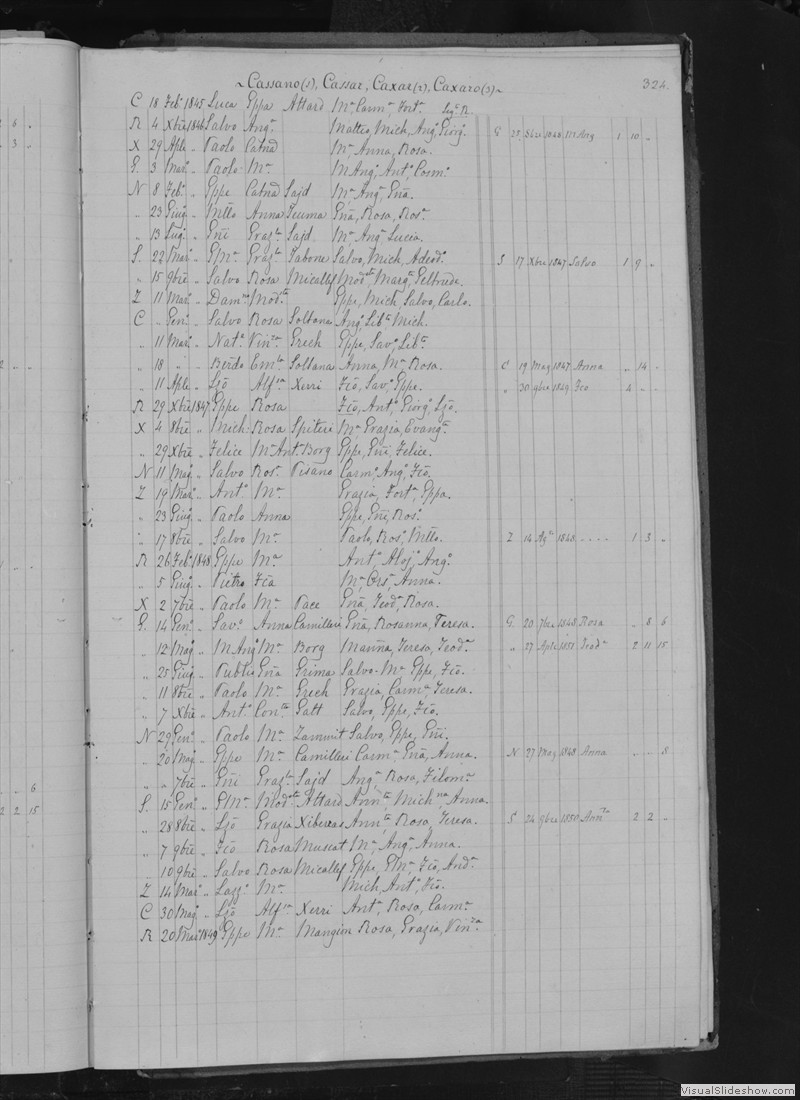 ~Cassano(s), Cassar, Caxar(2), Caxaro(3)~ 324.
C 18 Feb.º 1845 Luca Eppa Attard M.ª Carm.ª Fort.ª
R 4 Xbre 1846 Salvo Ang.ª Matteo, Mich, Ang.º Giorg.º G 1 10 "
X 29 Aple " Paolo Catnã M.ª Anna, Rosa.
G. 3 Mar.º " Paolo M.ª M Ang.º Ant.º Cosm.º
N 8 Feb.º " Eppe Catnã Sajd M.ª Ang.ª Enã.
" 23 Giug.º " Mtto Anna Teuma Enã, Rosa, Ros.ª
" 13 Lug.º " Enĩ Graz.la Sajd M.ª Ang.ª Lucia.
S. 22 Mar.º " GMª Graz.la Tabone Salvo, Mich, Adeod.º S 17 Xbre 1847 Salvo 1 9 "
" 15 9bre " Salvo Rosa Micallef Mod.ta Marg.ta Geltrude.
Z 11 Mar.º " Dam.no Mod.ta Eppe, Mich, Salvo, Carlo.
C " Gen.º " Salvo Rosa Soltana Ang.º Lib.ta Mich.
" 11 Mar.º " Nat.º Vin.za Grech Eppe, Sav.º Lib.ta
" 18 " " Berdo Em.la Soltana Anna, M.ª Rosa. C 19 Mag 1847 Anna " 14 "
" 11 Aple " Ljõ Alf.sa Xerri Fcõ, Sav.º Eppe. " 30 9bre 1849 Fco 4 " "
R 29 Xbre 1847 Eppe Rosa Fcõ, Ant.º Giorg.º Ljõ.
X 4 8bre " Mich: Rosa Spiteri M.ª Grazia, Evang.ta
" 29 Xbre " Felice M.ª Ant.ª Borg Eppe, Enĩ, Felice.
N 11 Mag.º " Salvo Ros.ª Pisano Carm.º Ang.º Fcõ.
Z 19 Mar.º " Ant.º M.ª Grazia, Fort.ª Eppa.
" 23 Giug.º " Paolo Anna Eppe, Enĩ, Ros.º
" 17 8bre " Salvo M.ª Paolo, Ros.º Mtto. Z 14 Ag.to 1848 - - - - 1 3 "
R 26 Feb.º 1848 Eppe M.ª Ant.º Aloj.º Ang.º
" 5 Giug.º " Pietro Fca M.ª Ors.ª Anna.
X 2 7bre " Paolo M.ª Pace Enã, Teod.ª Rosa.
G. 14 Gen.º " Sav.º Anna Camilleri Enã, Rosanna, Teresa. G. 20 7bre 1848 Rosa " 8 6
" 12 Mag.º " M Ang.º M.ª Borg Marina, Teresa, Teod.ª " 27 Aple Teod.ª 2 11 15
" 25 Giug.º " Publio Enã Grima Salvo. M.ª Eppe, Fcõ.
" 11 8bre " Paolo M.ª Grech Grazia, Carm.ª Teresa.
" 7 Xbre " Ant.º Con.ta Gatt Salvo, Eppe, Fcõ.
N 29 Gen.º " Paolo M.ª Zammit Salvo, Eppe, Enĩ.
" 20 Mag.º " Eppe M.ª Camilleri Carm.ª Enã, Anna. N 27 Mag 1848 Anna " " 8
" " 7bre " Enĩ Graz.la Sajd Ang.ª Rosa, Filom.ª
S. 15 Gen.º " GMª Mod.ta Attard Ann.ta Mich.na Anna.
" 28 8bre " Ljõ Grazia Xiberras Ann.ta Rosa, Teresa. S 24 9bre 1850 Ann.ta 2 2 "
" 7 9bre " Fcõ Rosa Muscat M.ª Ang.ª Anna.
" 10 9bre " Salvo Rosa Micallef Eppe, GMª, Fcõ, And.ª
Z 14 Mar.º " Lazz.º M.ª Mich, Ant.º Fcõ.
C 30 Mag.º " Ljõ Alf.sa Xerri Ant.ª Rosa, Carm.ª
R 20 Mar.º 1849 Eppe M.ª Mangion Rosa, Grazia, Vin.za
6 "
3 "
6
2 2 15
VisualSlideshow.com